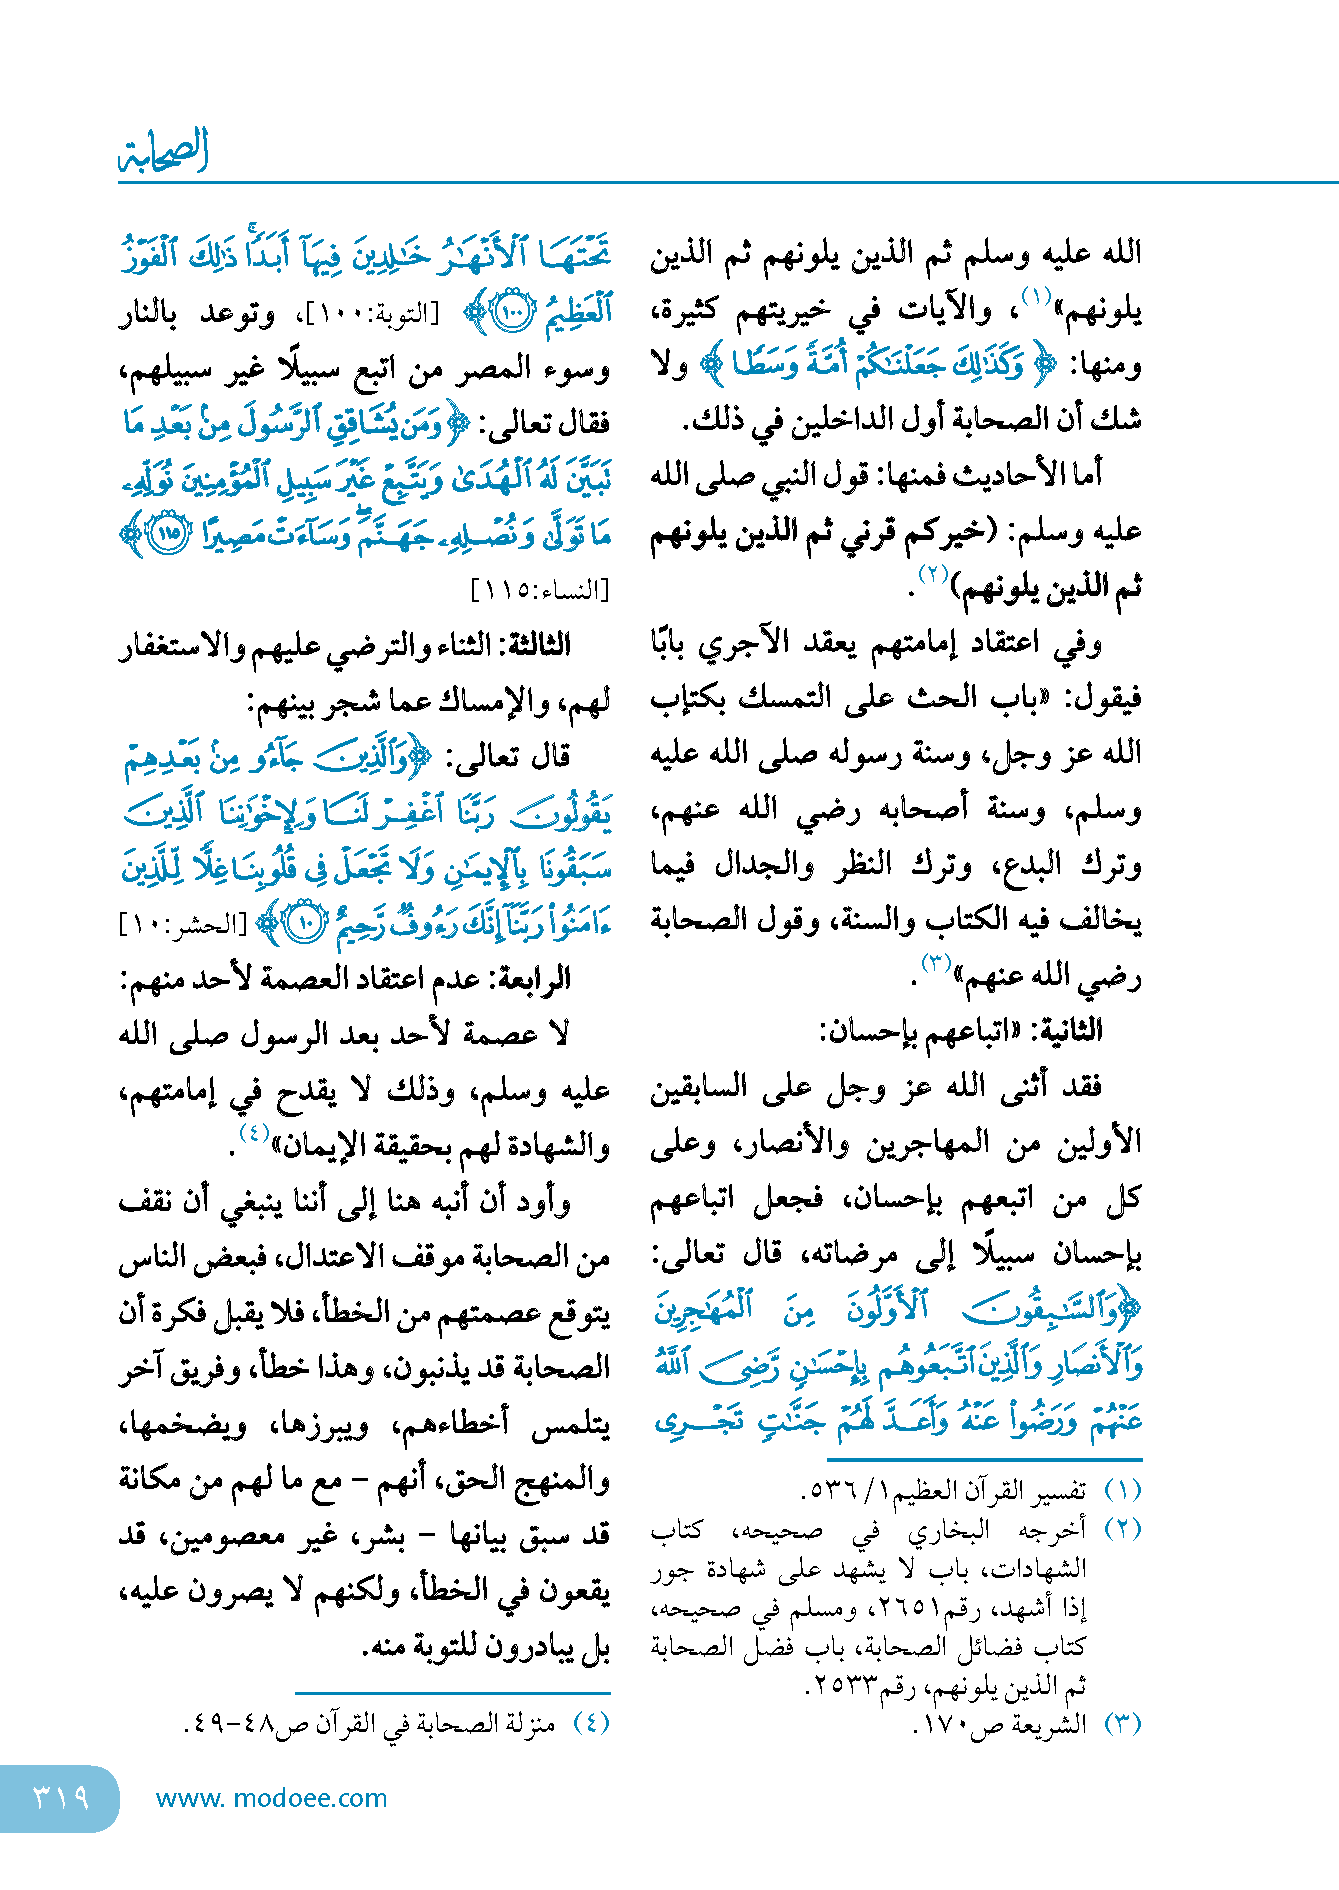 الصحابة
الله عليه وسلم ثم الذين يلونهم ثم الذين
يلونهم»(١)، والآيات في خيريتهم كثيرة،
ومنها: ﴿وَكَذَٰلِكَ جَعَلْنَٰكُمْ أُمَّةً وَسَطًا﴾ ولا
شك أن الصحابة أول الداخلين في ذلك.
أما الأحاديث فمنها: قول النبي صلى الله
عليه وسلم: (خيركم قرني ثم الذين يلونهم
ثم الذين يلونهم)(٢).
وفي اعتقاد إمامتهم يعقد الآجري بابًا
فيقول: «باب الحث على التمسك بكتإب
الله عز وجل، وسنة رسوله صلى الله عليه
وسلم، وسنة أصحابه رضي الله عنهم،
وترك البدع، وترك النظر والجدال فيما
يخالف فيه الكتاب والسنة، وقول الصحابة
رضي الله عنهم»(٣).
الثانية: «اتباعهم بإحسان:
فقد أثنى الله عز وجل على السابقين
الأولين من المهاجرين والأنصار، وعلى
كل من اتبعهم بإحسان، فجعل اتباعهم
بإحسان سبيلًا إلى مرضاته، قال تعالى:
﴿وَٱلسَّٰبِقُونَ ٱلْأَوَّلُونَ مِنَ ٱلْمُهَٰجِرِينَ
وَٱلْأَنصَارِ وَٱلَّذِينَ ٱتَّبَعُوهُم بِإِحْسَٰنٍ رَّضِىَ ٱللَّهُ
عَنْهُمْ وَرَضُوا۟ عَنْهُ وَأَعَدَّ لَهُمْ جَنَّٰتٍ تَجْرِى
(١) تفسير القرآن العظيم١/ ٥٣٦.
(٢) أخرجه البخاري في صحيحه، كتاب
الشهادات، باب لا يشهد على شهادة جور
إذا أشهد، رقم٢٦٥١، ومسلم في صحيحه،
كتاب فضائل الصحابة، باب فضل الصحابة
ثم الذين يلونهم، رقم٢٥٣٣.
(٣) الشريعة ص١٧٠.
تَحْتَهَا ٱلْأَنْهَٰرُ خَٰلِدِينَ فِيهَآ أَبَدًا ۚ ذَٰلِكَ ٱلْفَوْزُ
ٱلْعَظِيمُ ١٠٠﴾ [التوبة:١٠٠]، وتوعد بالنار
وسوء المصر من اتبع سبيلًا غير سبيلهم،
فقال تعالى: ﴿وَمَن يُشَاقِقِ ٱلرَّسُولَ مِنۢ بَعْدِ مَا
تَبَيَّنَ لَهُ ٱلْهُدَىٰ وَيَتَّبِعْ غَيْرَ سَبِيلِ ٱلْمُؤْمِنِينَ نُوَلِّهِۦ
مَا تَوَلَّىٰ وَنُصْلِهِۦ جَهَنَّمَ ۖ وَسَآءَتْ مَصِيرًا ١١٥﴾
[النساء:١١٥]
الثالثة: الثناء والترضي عليهم والاستغفار
لهم، والإمساك عما شجر بينهم:
قال تعالى: ﴿وَٱلَّذِينَ جَآءُو مِنۢ بَعْدِهِمْ
يَقُولُونَ رَبَّنَا ٱغْفِرْ لَنَا وَلِإِخْوَٰنِنَا ٱلَّذِينَ
سَبَقُونَا بِٱلْإِيمَٰنِ وَلَا تَجْعَلْ فِى قُلُوبِنَا غِلًّا لِّلَّذِينَ
ءَامَنُوا۟ رَبَّنَآ إِنَّكَ رَءُوفٌ رَّحِيمٌ ١٠﴾ [الحشر:١٠]
الرابعة: عدم اعتقاد العصمة لأحد منهم:
لا عصمة لأحد بعد الرسول صلى الله
عليه وسلم، وذلك لا يقدح في إمامتهم،
والشهادة لهم بحقيقة الإيمان»(٤).
وأود أن أنبه هنا إلى أننا ينبغي أن نقف
من الصحابة موقف الاعتدال، فبعض الناس
يتوقع عصمتهم من الخطأ، فلا يقبل فكرة أن
الصحابة قد يذنبون، وهذا خطأ، وفريق آخر
يتلمس أخطاءهم، ويبرزها، ويضخمها،
والمنهج الحق، أنهم - مع ما لهم من مكانة
قد سبق بيانها - بشر، غير معصومين، قد
يقعون في الخطأ، ولكنهم لا يصرون عليه،
بل يبادرون للتوبة منه.
(٤) منزلة الصحابة في القرآن ص٤٨-٤٩.
www. modoee.com
٣١٩